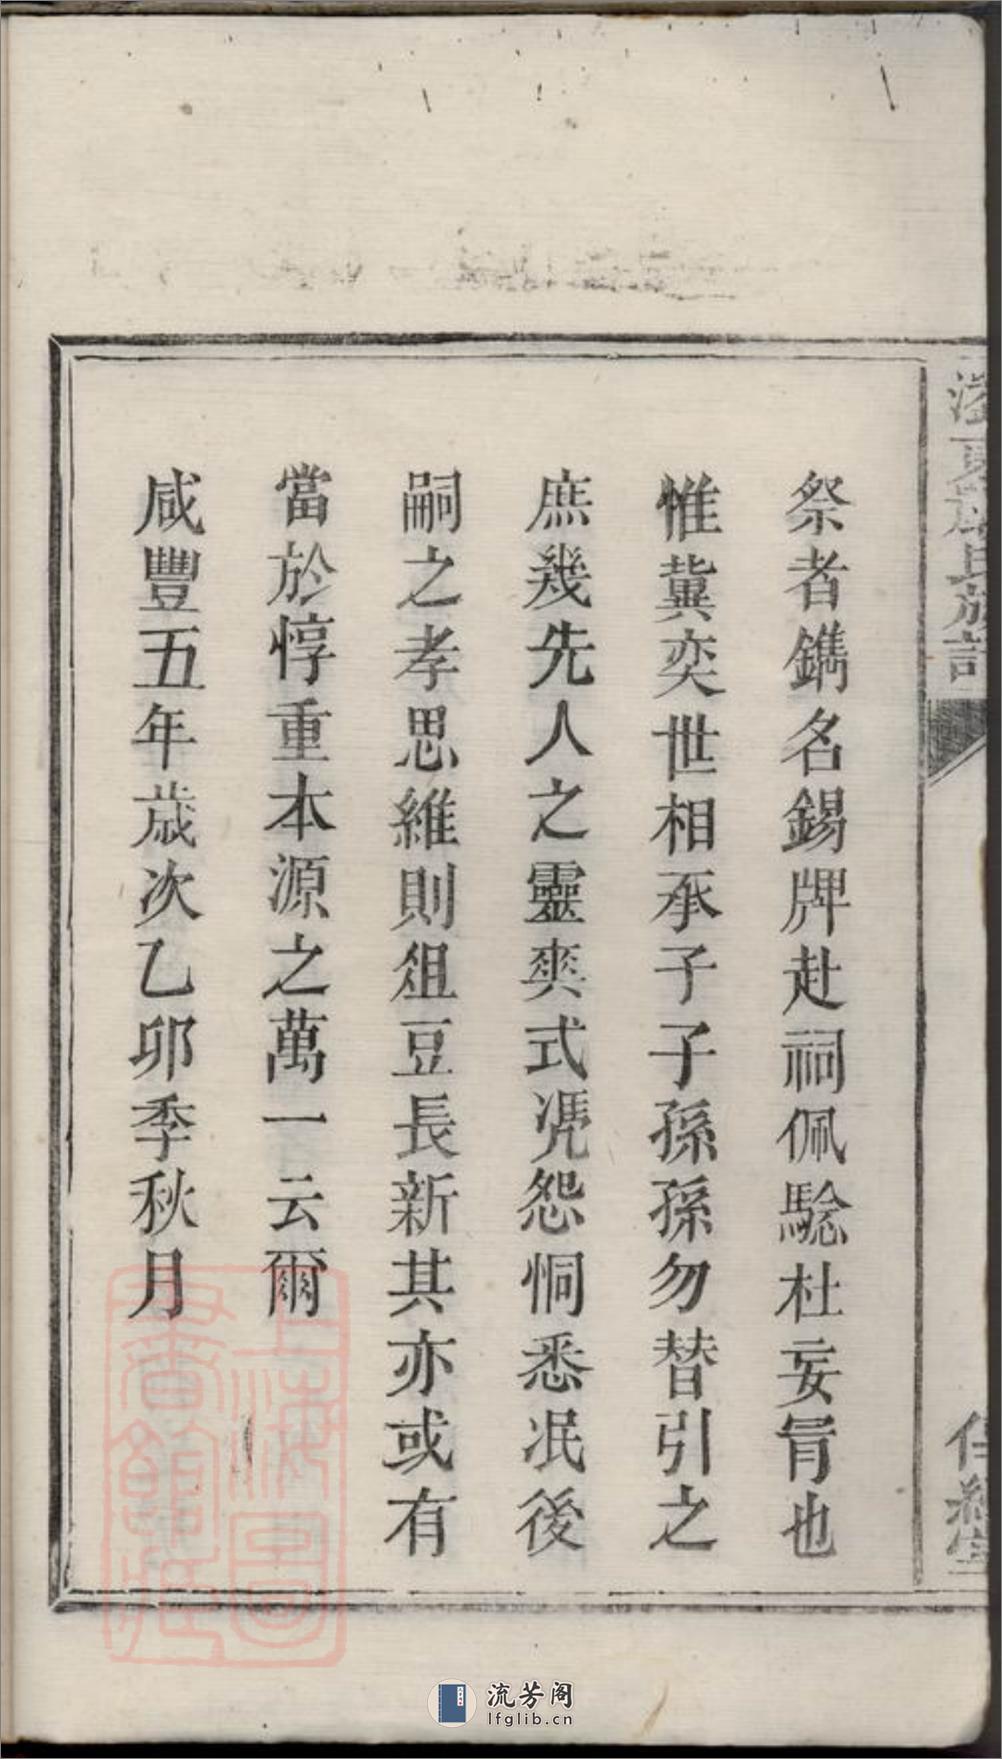 祭者鐫名錫牌赴祠佩騐杜妄冐也
惟冀奕世相承子子孫孫勿替引之
庶幾先人之靈爽式凴怨恫悉泯後
嗣之孝思維則俎豆長新其亦或有
當於惇重本源之萬一云爾
咸豐五年歲次乙卯季秋月
氏族譜
上海圖書館藏
流芳阁
lfglib.cn